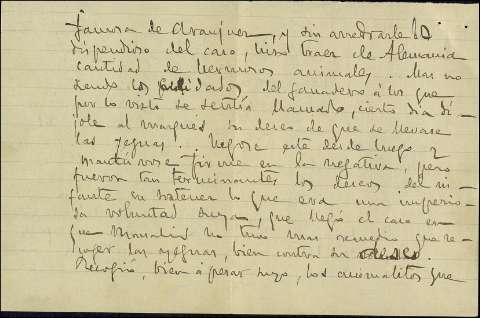 famosa de Aranjuez, y sin arredrarle lo
dispendioso del caso, hizo traer de Alemania
cantidad de hermosos animales. Mas no
siendo los cuidados del ganadero á los que
por lo visto se sentía llamado, cierto día dí-
jole al marqués su deseo de que se llevase
las yeguas. Negose este desde luego y
mantuvose firme en la negativa, pero
fueron tan terminantes los deseos del in-
fante en sostener lo que era una imperio-
sa voluntad suya, que llegó el caso en
que Monsalud no tuvo mas remedio que re-
coger las yeguas, bien contra su deseo.
Recogió, bien á pesar suyo, los animalitos que